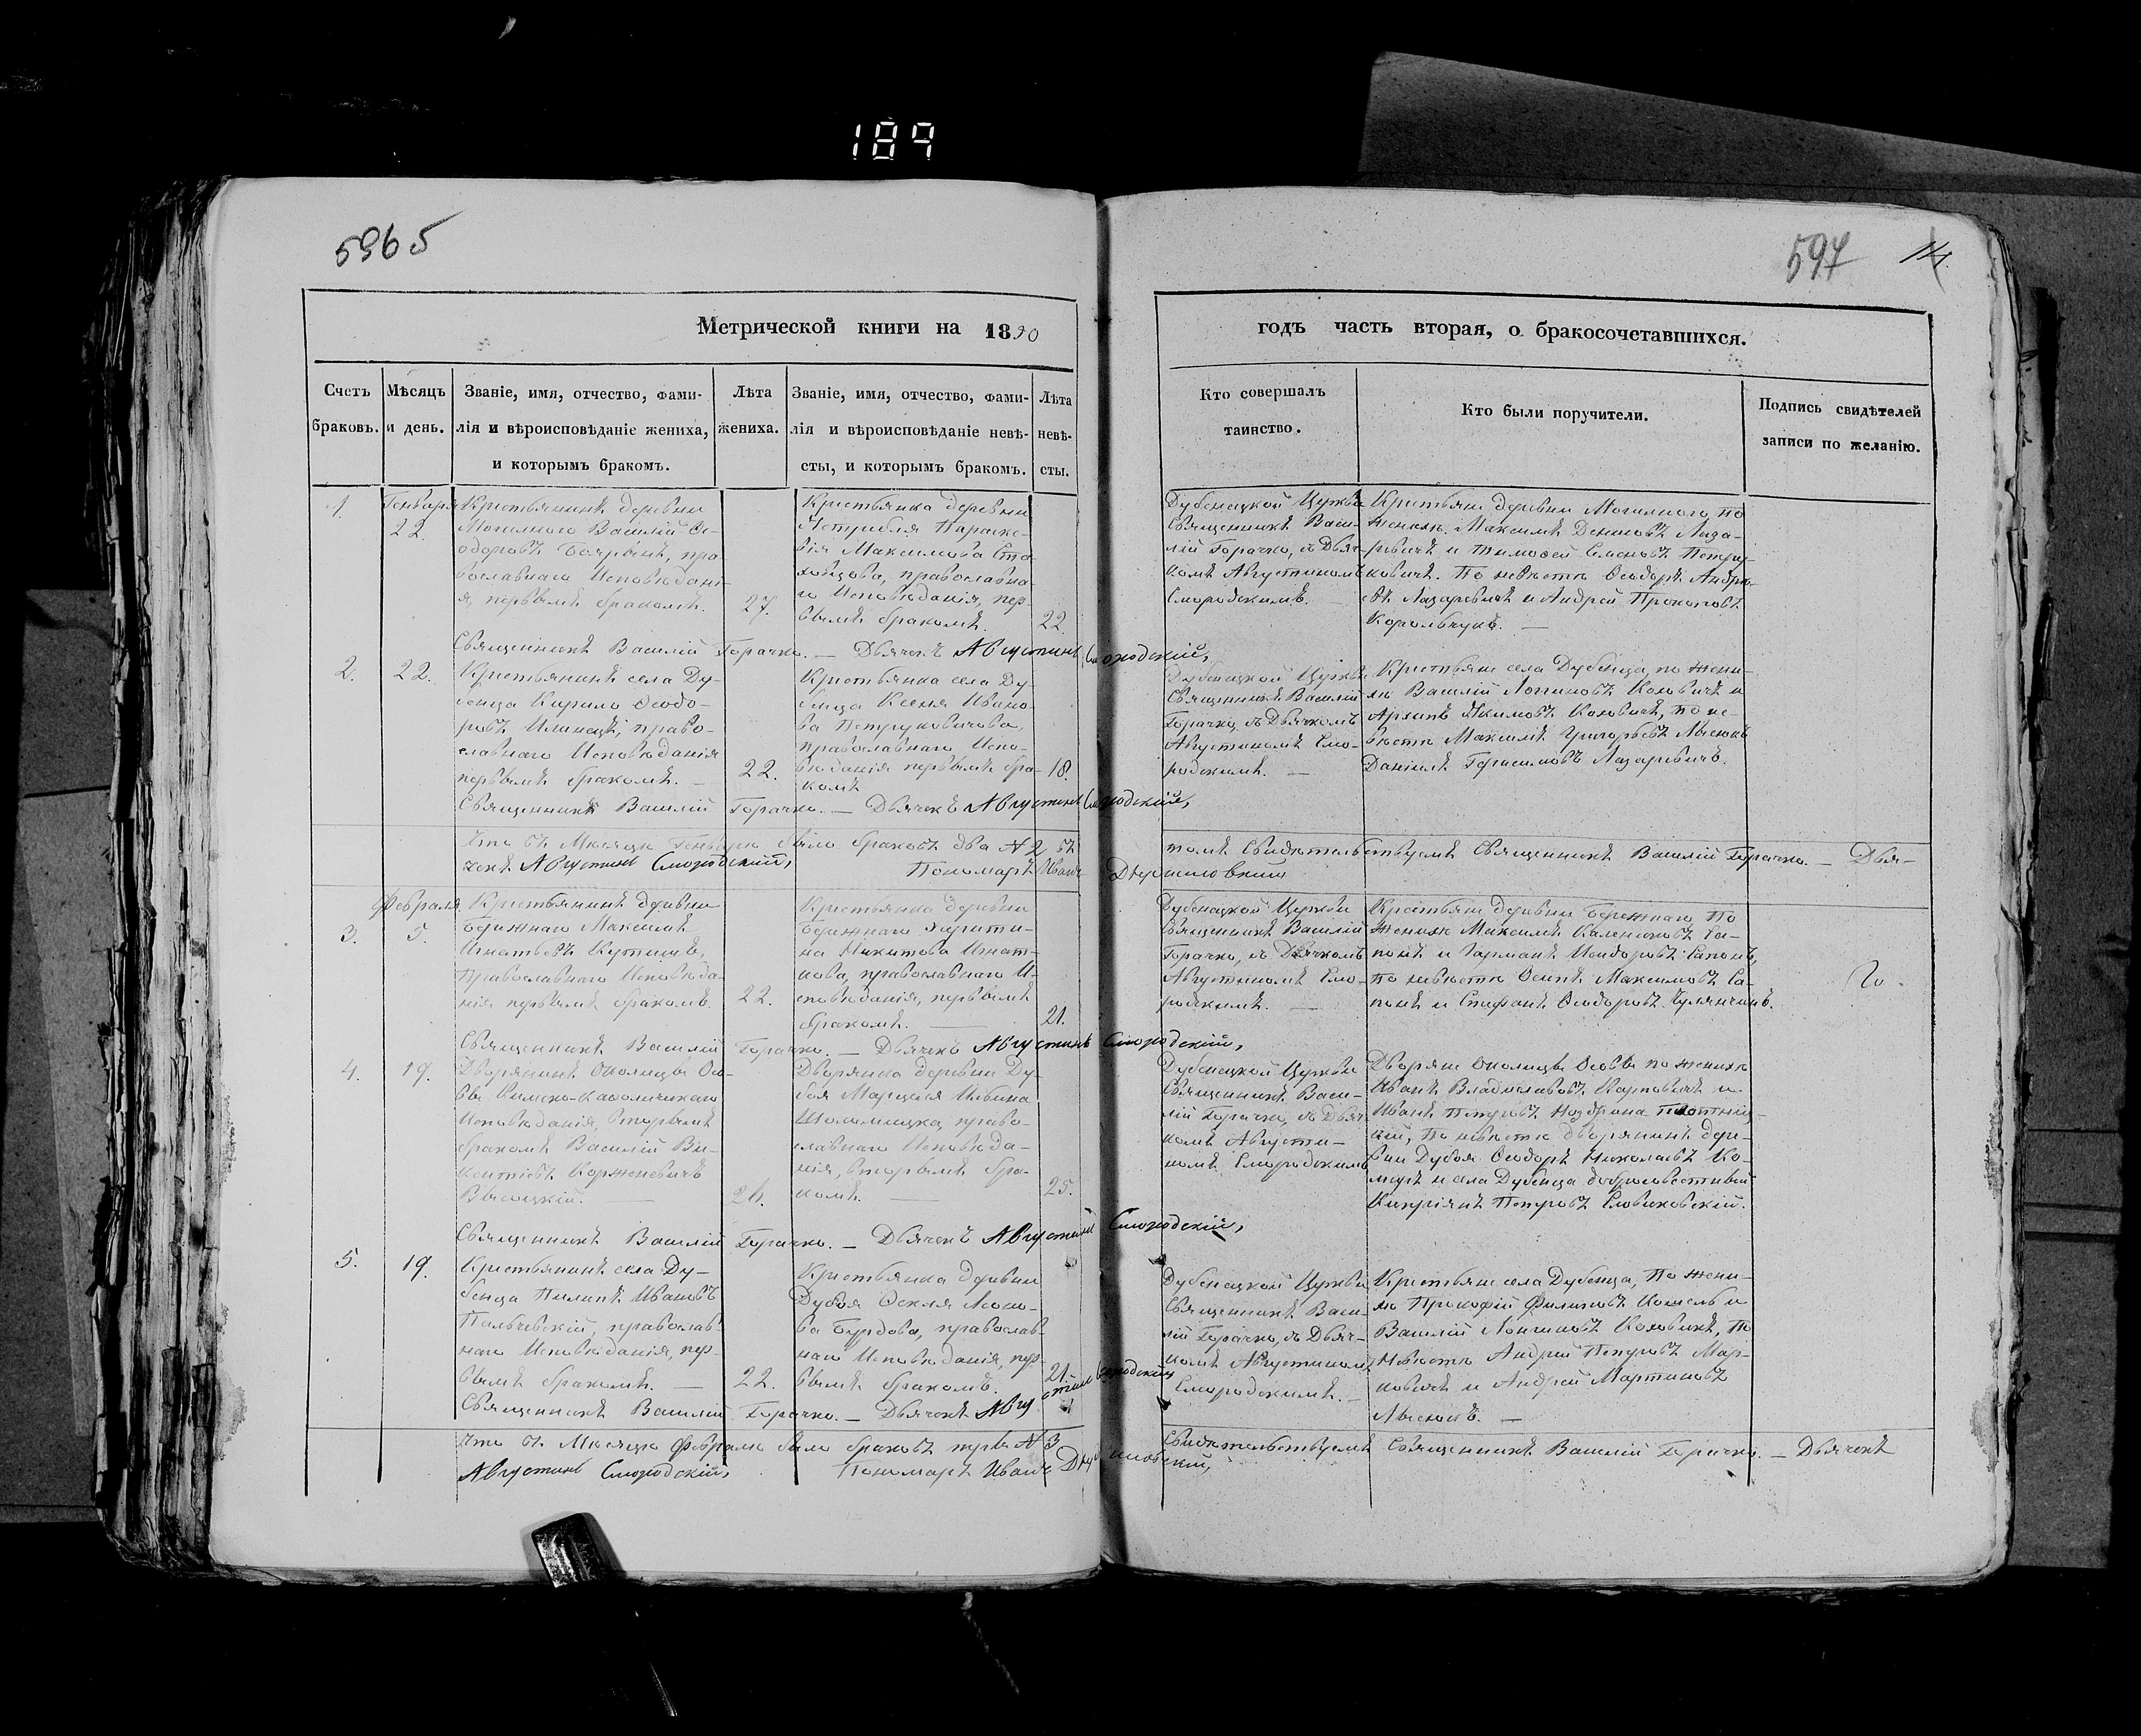 189
5965
597 14.
Метрической книги на 1850
годъ часть вторая, о бракосочетавшихся.
Счетъ браковъ.
Мѣсяцъ и день.
Званіе, имя, отчество, фами-
лія и вѣроисповѣданіе жениха,
и которымъ бракомъ.
Лѣта
жениха.
Званіе, имя, отчество, фами-
лія и вѣроисповѣданіе невѣ-
сты, и которымъ бракомъ.
Лѣта
невѣ-
сты.
Кто совершалъ
таинство.
Кто были поручители.
Подпись свидѣтелей
записи по желанію.
1.
Генваря
22.
Крестьянинъ деревни
Могилного Василій Ѳе-
одоровъ, пра-
вославнаго Исповѣдані-
я, первымъ бракомъ.
27.
Крестьянка деревни
Параске-
вія Максимова
православна-
го Исповѣданія, пер-
вымъ бракомъ.
22.
Дубенецкой Церкви
Священникъ Васи-
лій Горачко, съ Дьяч-
комъ Августиномъ
Смородскимъ. —
Крестьяне деревни Могилного по
женихѣ Максимъ Денисовъ Лаза-
ревичъ и Тимоѳей Семеновъ Петру-
ковичъ. По невѣстѣ Ѳеодоръ Андре-
евъ Лазаревичъ и Андрей Прокоповъ
Корольчукъ. —
Священникъ Василій Горачко. — Дьячекъ Августинъ Смородскій,
2.
22.
Крестьянинъ села Ду-
бенца Кирило Ѳеодо-
ровъ право-
славнаго Исповѣданія
первымъ бракомъ. —
22.
Крестьянка села Ду-
бенца Ксенія Ивано-
ва Петруковичова,
православнаго Испо-
вѣданія первымъ бра-
комъ
18.
Дубенецкой Церкви
Священникъ Василій
Горачко, съ Дьячкомъ
Августиномъ Смо-
родскимъ. —
Крестьяне села Дубенца, по жени-
хѣ Василій Лонгиновъ Коховичъ и
Архипъ Якимовъ Коховичъ, по не-
вѣстѣ Максимъ Григорьевъ Лысюкъ
Даніилъ Герасимовъ Лазаревичъ.
Священникъ Василій Горачко. — Дьячекъ Августинъ Смородскій,
Что въ Мѣсяцѣ Генварѣ было браковъ два № 2 въ
томъ Свидѣтельствуемъ Священникъ Василій Горачко. — Дья-
чекъ Августинъ Смородскій, Пономарь Иванъ
Февраля
3.
5.
Крестьянинъ деревни
Бережнаго Максимъ
Игнатьевъ
Православнаго Исповѣда-
нія первымъ бракомъ.
22.
Крестьянка деревни
Бережнаго Христи-
на Никитова Игнат-
кова, православнаго И-
сповѣданія, первымъ
бракомъ. —
21.
Дубенецкой Церкви
Священникъ Василій
Горачко, съ Дьячкомъ
Августиномъ Смо-
родскимъ. —
Крестьяне деревни Бережнаго, По
Женихѣ Максимъ Калениковъ Са-
понъ и Исидоровъ Сапонъ,
по невѣстѣ Осипъ Максимовъ Са-
понъ и Стефанъ Ѳеодоровъ
Священникъ Василій Горачко. — Дьячекъ Августинъ Смородскій,
4.
19.
Дворянинъ Околицы Осо-
вы Римско-Католическаго
Исповѣданія, вторымъ
бракомъ Василій Ви-
кентіевъ Корженевичъ
Высоцкій. —
26.
Дворянка деревни Ду-
боя
Шоломицка право-
славнаго Исповѣда-
нія, вторымъ бра-
комъ. —
25.
Дубенецкой Церкви
Священникъ Васи-
лій Горачко, съ Дьяч-
комъ Августи-
номъ Смородскимъ
Дворяне Околицы Осовы по женихѣ
Иванъ Владиславовъ Карповичъ и
Иванъ Петровъ Ноздрина Плотниц-
кій, По невѣстѣ дворянинъ дере-
вни Дубоя Ѳеодоръ Николаевъ Ко-
маръ и села Дубенца добросовѣстный
Кипріянъ Петровъ
Священникъ Василій Горачко. — Дьячекъ Августинъ Смородскій,
5.
19.
Крестьянинъ села Ду-
бенца Пилипъ Ивановъ
Пальчевскій, православ-
наго Исповѣданія, пер-
вымъ бракомъ. —
22.
Крестьянка деревни
Дубоя
православ-
наго Исповѣданія, пер-
вымъ бракомъ.
21.
Дубенецкой Церкви
Священникъ Васи-
лій Горачко, съ Дьяч-
комъ Августиномъ
Смородскимъ. —
Крестьяне села Дубенца, По жени-
хѣ Прокофій Филиповъ Кошель и
Василій Лонгиновъ Коховичъ, По
Невѣстѣ Андрей Петровъ Мар-
ковичъ и Андрей Мартиновъ
Лысюкъ. —
Священникъ Василій Горачко. — Дьячекъ Августинъ Смородскій
Что въ Мѣсяцѣ Февралѣ было браковъ три № 3
Свидѣтельствуемъ Священникъ Василій Горачко. — Дьячекъ
Августинъ Смородскій, Пономарь Иванъ